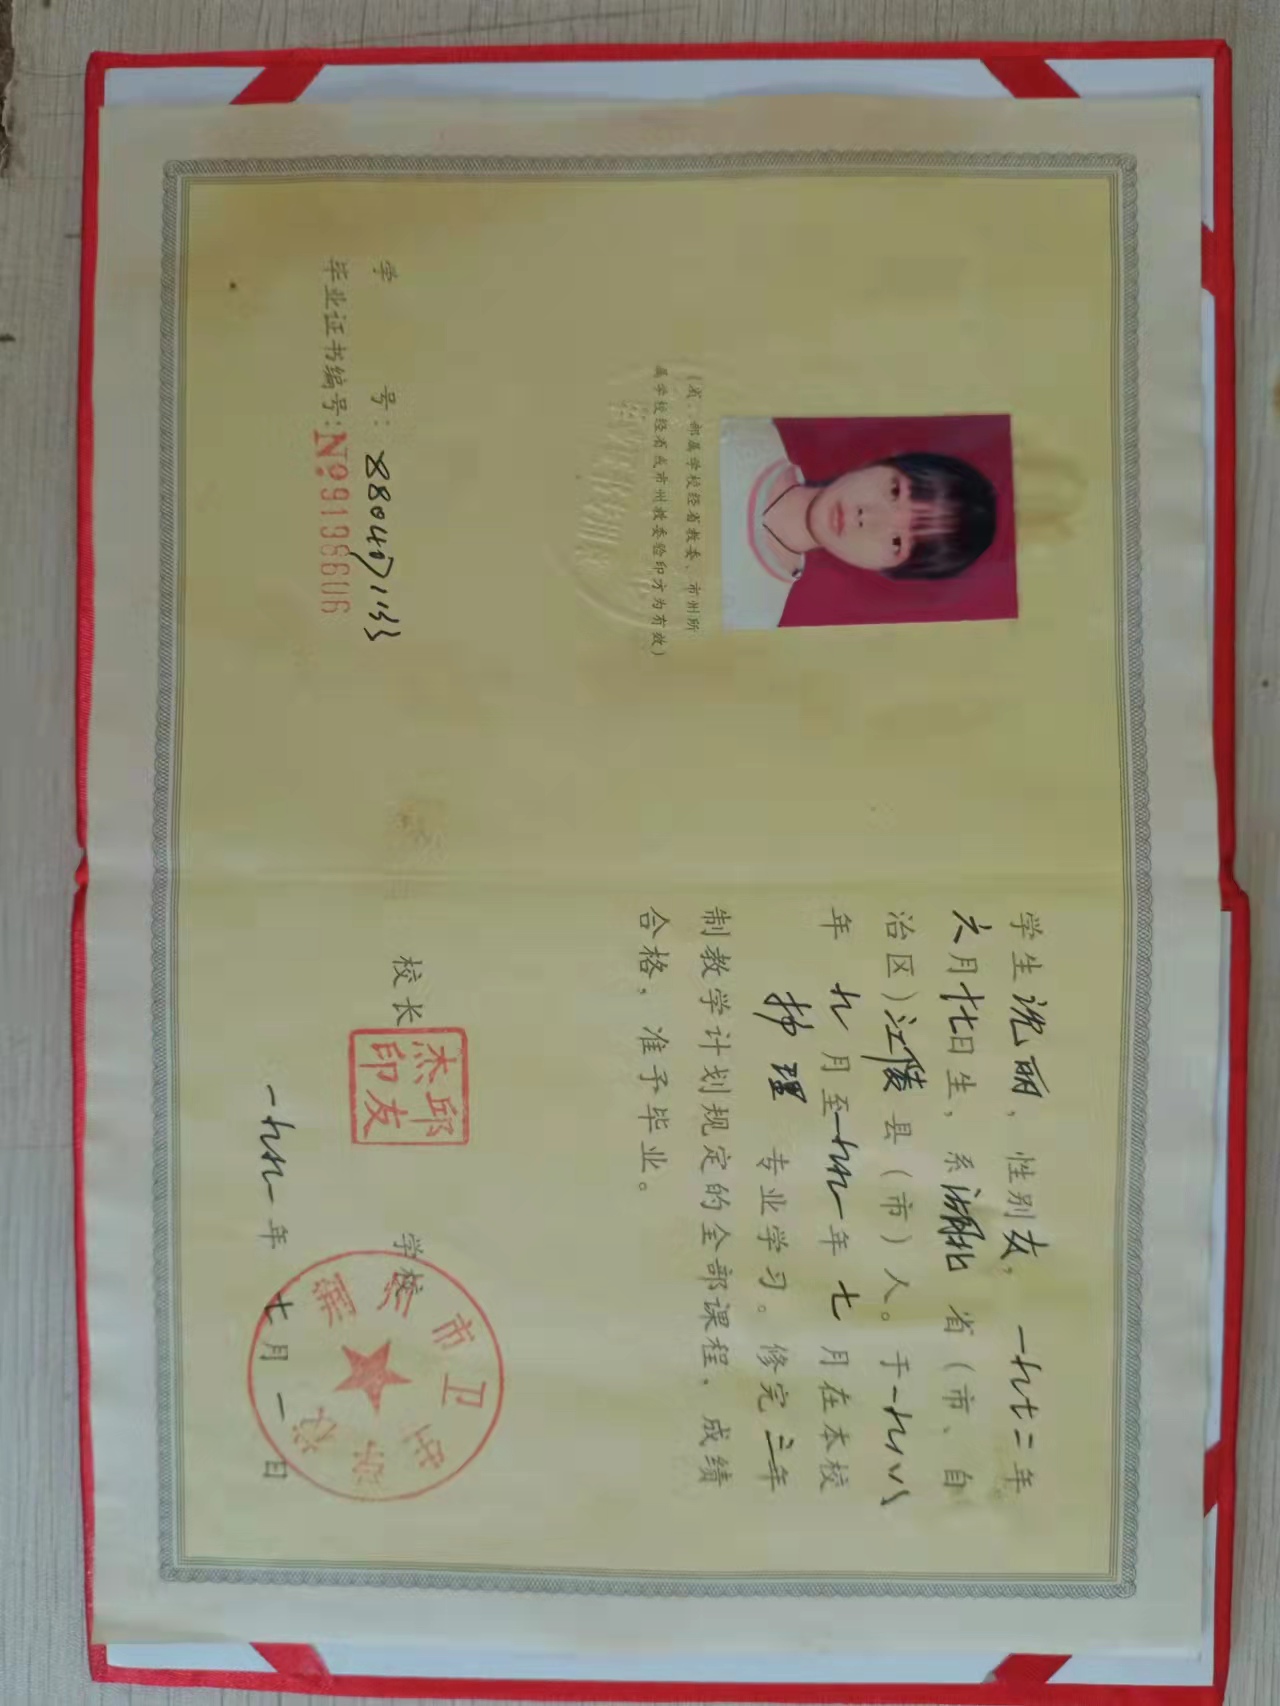 (省、部属学校经省教委、市州所
属学校经省或市州教委验印方为有效)
学 号:
毕业证书编号:№9196606
学生沈丽、性别女,一九七二年
六月十七日生,系湖北省(市、自
治区)江陵县(市)人。于一九八八
年九月至一九九一年七月在本校
护理专业学习。修完三年
制教学计划规定的全部课程,成绩
合格,准予毕业。
校长
邱友杰印
学校
市卫
学校
一九九一年七月一日